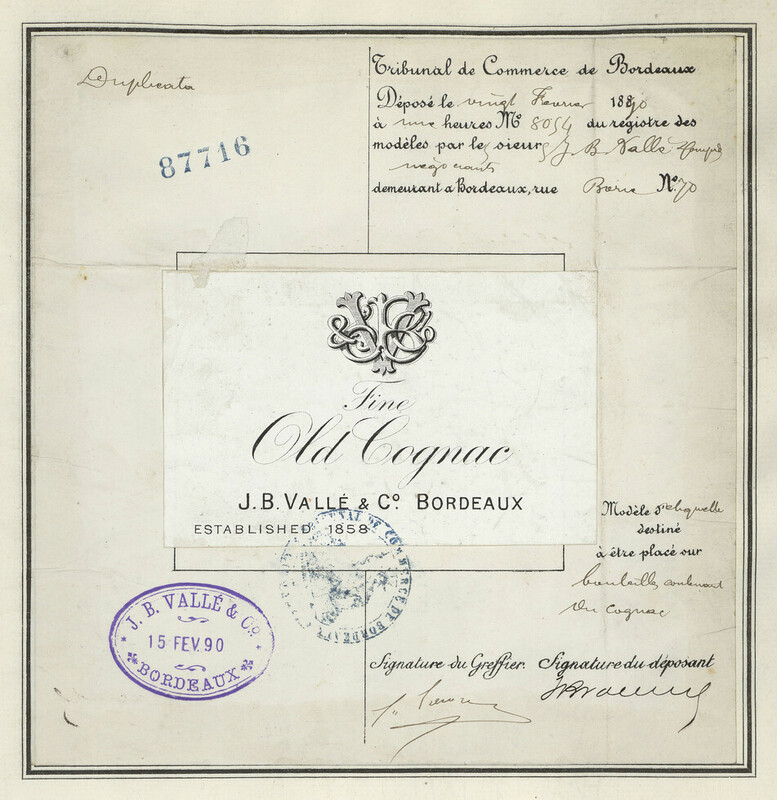 Duplicata
87716
Tribunal de Commerce de Bordeaux
Déposé le vingt Fevrier 1890
à une heures No 8054 du registre des
modèles par les sieurs J. B. Vallé
négociants
demeurant a Bordeaux, rue Borie No. 70
Fine
Old Cognac
J. B. VALLÉ & Co BORDEAUX
ESTABLISHED 1858
Modèle d'etiquette
destiné
à être placé sur
bouteilles contenant
du cognac
TRIBUNAL DE COMMERCE DE BORDEAUX
J. B. VALLÉ & Co.
15 FEV. 90
BORDEAUX
Signature du Greffier. Signature du déposant